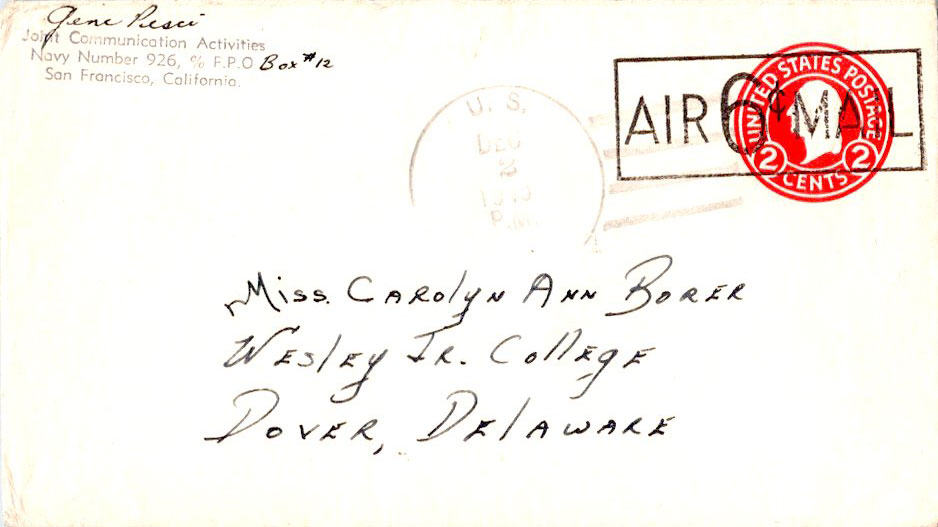 Gene Pesci
Joint Communication Activities
Navy Number 926, % F.P.O Box #12
San Francisco, California.
U. S.
DEC
2
P.M.
AIR 6¢ MAIL
UNITED STATES POSTAGE
2 CENTS 2
Miss. Carolyn Ann Borer
Wesley Jr. College
Dover, Delaware